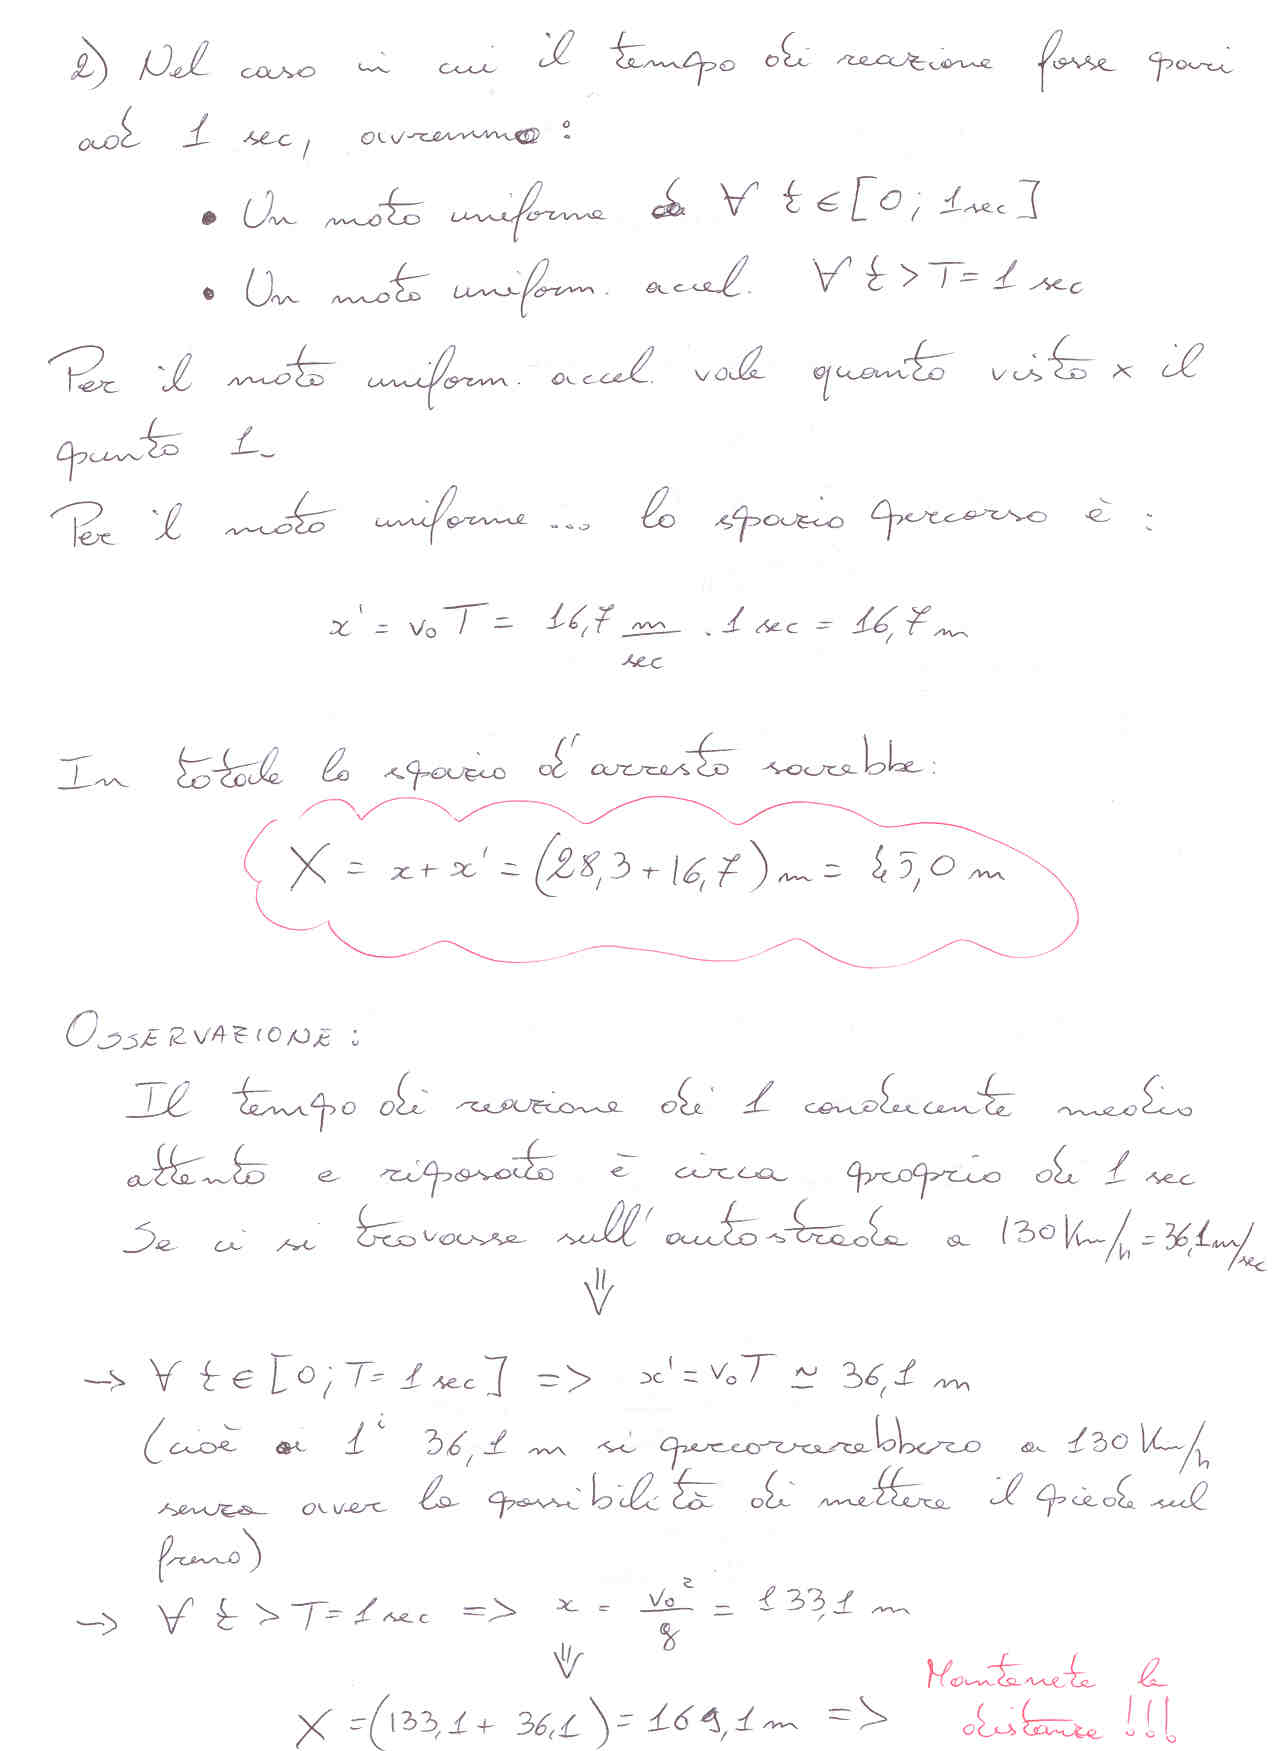 2) Nel caso in cui il tempo di reazione fosse pari
ad 1 sec, avremmo:
• Un moto uniforme ∀ t ∈ [0 ; 1 sec]
• Un moto uniform. accel. ∀ t > T = 1 sec
Per il moto uniform. accel. vale quanto visto x il
punto 1_
Per il moto uniforme... lo spazio percorso è :
x' = v₀ T = 16,7 m/sec . 1 sec = 16,7 m
In totale lo spazio d'arresto sarebbe:
X = x + x' = (28,3 + 16,7) m = 45,0 m
OSSERVAZIONE :
Il tempo di reazione di 1 conducente medio
attento e riposato è circa proprio di 1 sec
Se ci si trovasse sull'autostrada a 130 Km/h = 36,1 m/sec
⇓
→ ∀ t ∈ [0 ; T = 1 sec] => x' = v₀ T ≃ 36,1 m
(cioè i 1ⁱ 36,1 m si percorrerebbero a 130 Km/h
senza aver la possibilità di mettere il piede sul
freno)
→ ∀ t > T = 1 sec => x = v₀²/g = 133,1 m
⇓
X = (133,1 + 36,1) = 169,1 m => Mantenete le
distanze !!!